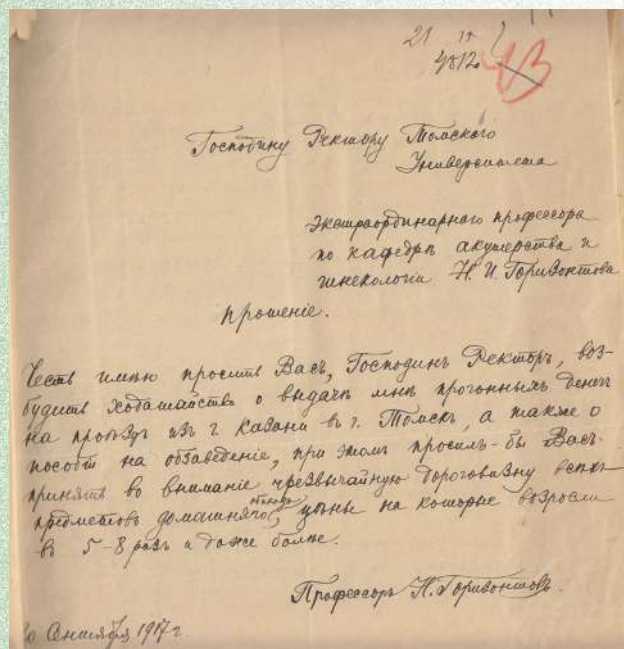 21 15
4812
43
Господину Ректору Томского
Университета
Экстраординарного профессора
по кафедрѣ акушерства и
гинекологіи Н. И. Горизонтова
прошеніе.
Честь имѣю просить Васъ, Господинъ Ректоръ, воз-
будить ходатайство о выдачѣ мнѣ прогонныхъ денегъ
на проѣздъ изъ г. Казани въ г. Томскъ, а также о
пособіи на обзаведеніе, при этомъ просилъ-бы Васъ
принять во вниманіе чрезвычайную дороговизну всѣхъ
предметовъ домашняго цѣны на которые возросли
въ 5-8 разъ и даже болѣе.
Профессоръ Н. Горизонтовъ.
Сентября 1917 г.